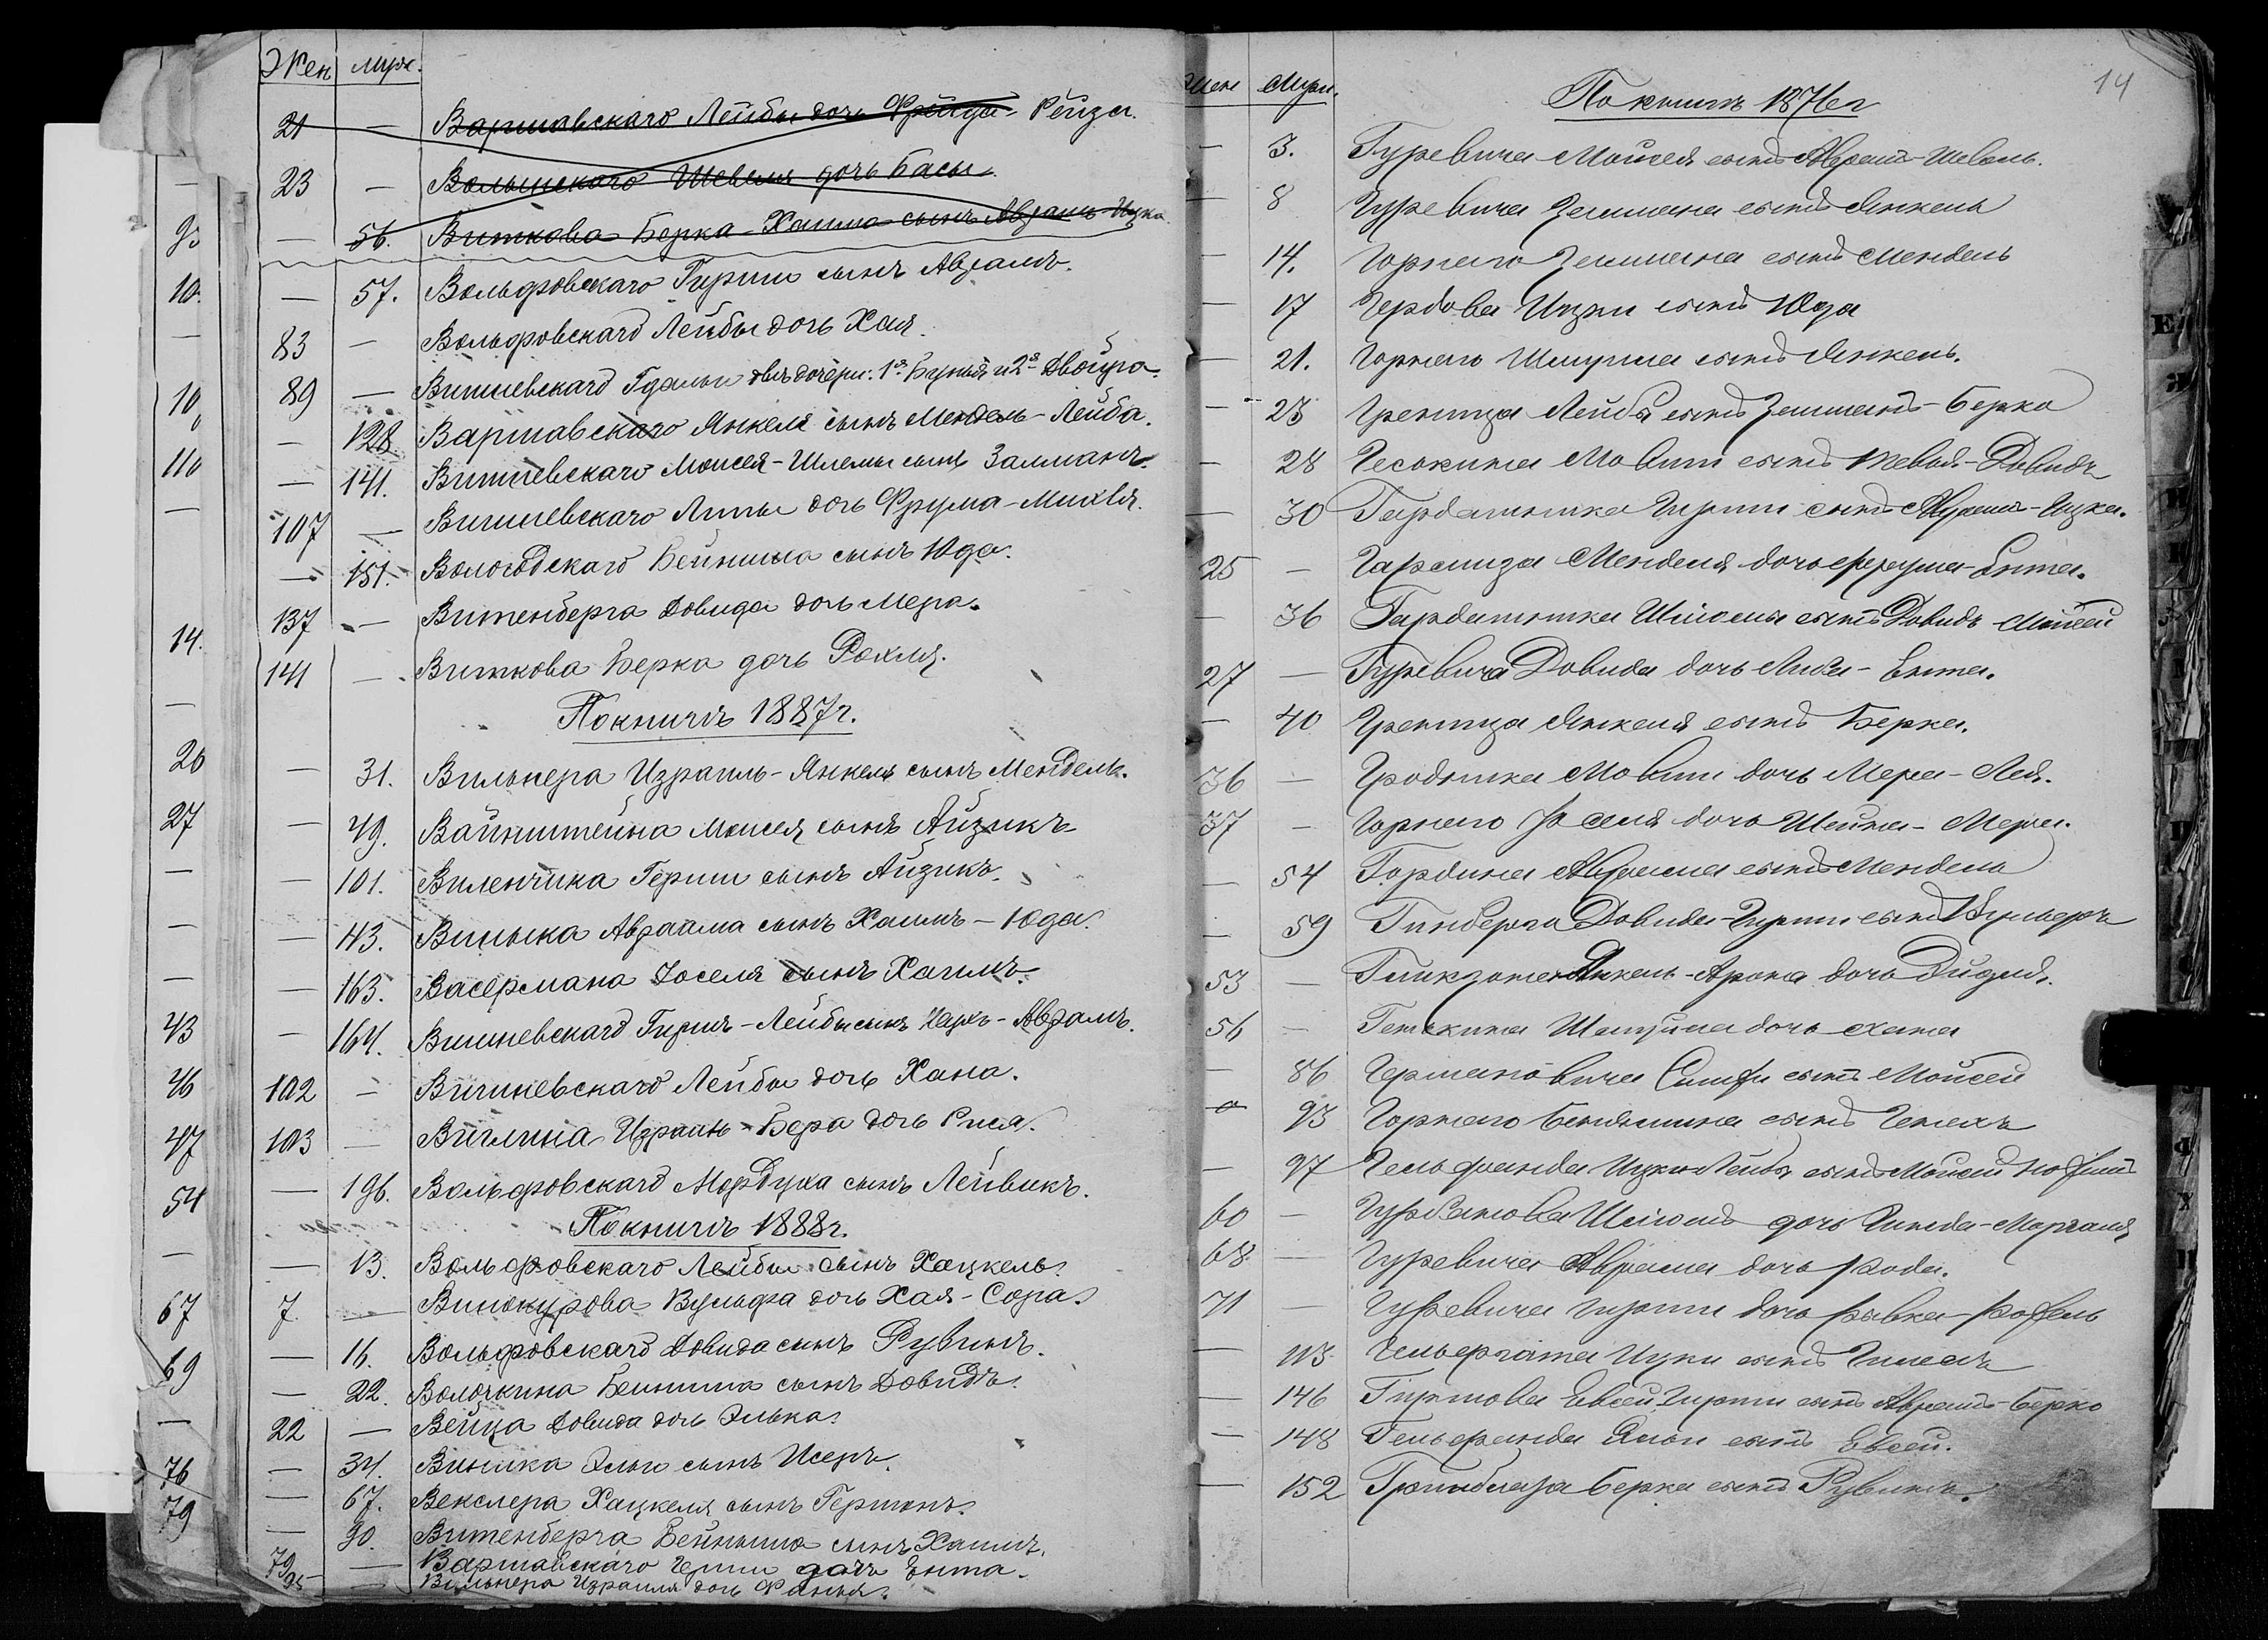 Жен муж.
21 — Варшавскаго Лейбы дочь Фрейда - Рейза.
23 — Волынскаго Шевеля дочь Бася.
— 56. Виткова Берка-Хаима сынъ Авраамъ-Ицка
— 57. Вольфовскаго Гирши сынъ Авраамъ.
83 — Вольфовскаго Лейбы дочь Хая.
89 — Вишневскаго Гдальи двѣ дочери: 1я Бунья и 2я Двойра.
— 128 Варшавскаго Янкеля сынъ Мендель-Лейба.
— 141. Вишневскаго Моисея-Шлемы сынъ Залманъ.
107 — Вишневскаго Липы дочь Фрума-Михля.
— 151. Вологодскаго Бейниша сынъ Юда.
137 — Витенберга Довида дочь Мера.
141 — Виткова Берка дочь Рохля.
По книгѣ 1887 г.
— 31. Вильнера Израиль-Янкеля сынъ Мендель.
— 49. Вайнштейна Моисея сынъ Айзикъ
— 101. Виленчика Герши сынъ Айзикъ.
— 143. Виника Авраама сынъ Хаимъ-Юда.
— 163. Васермана Іоселя сынъ Хаимъ.
— 164. Вишневскаго Гиршъ-Лейбы сынъ - Авраамъ.
102 — Вишневскаго Лейбы дочь Хана.
103 — Виглина Израиль-Бера дочь Рися.
— 196. Вольфовскаго Мордуха сынъ Лейвикъ.
По книгѣ 1888 г.
— 13. Вольфовскаго Лейбы сынъ Хацкель.
7 — Винокурова Вульфа дочь Хая-Сора.
— 16. Вольфовскаго Довида сынъ Рувинъ.
— 22. Волочкина Бейниша сынъ Довидъ.
22 — Вейца Довида дочь Элька.
— 34. Виника Эльи сынъ Исеръ.
— 67. Векслера Хацкеля сынъ Гершонъ.
— 90. Витенберга Бейныша сынъ Хаимъ.
79 — Варшавскаго Герши дочь Ента.
95 — Вильнера Израиля дочь Фанья.
95
10.
—
10
110
—
14.
—
26
27
—
—
—
43
46
47
54
—
67
69
—
76
79
14
Жен Муж.
По книгѣ 1876 г
— 3. Гуревича Моисея сынъ Абрамъ-Шевель.
— 8 Гуревича Зелмана сынъ Янкель
— 14. Горнаго Зелмана сынъ Мендель
— 17 Гердова Ицки сынъ Юда
— 21. Горнаго Шмуила сынъ Янкель.
— 23 Греница Лейбы сынъ Зелманъ-Берко
— 28 Гесокина Мовши сынъ Тевель-Довидъ
— 30 Гирши сынъ Абрамъ-Ицка.
25 — Менделя дочь Фрума-Ента.
— 36 Шліомы сынъ Довидъ Мойсей
27 — Гуревича Довида дочь Либа-Ента.
— 40 Греница Янкеля сынъ Берка.
36 — Гродника Мовши дочь Мера-Лея.
37 — Горнаго Іоселя дочь Шейна-Мера.
— 54 Гордина Абрама сынъ Мендель
— 59 Гинберга Довида-Гирши сынъ
53 — Янкель-Арона дочь
56 — дочь Хана
— 86 Германовича сынъ Мойсей
— 93 Горнаго Беньямина сынъ
— 97 Гельфанда Ицки-Лейбы сынъ Мойсей
60 — дочь Гинда-
68 — Гуревича Абрама дочь Рода.
71 — Гуревича Гирши дочь Рывка-Рохель
— 113 Ицки сынъ
— 146 Гиршова Евсей Гирши сынъ Абрамъ-Берко
— 148 Гельфанда сынъ Евсей.
— 152 Берка сынъ Рувинъ.